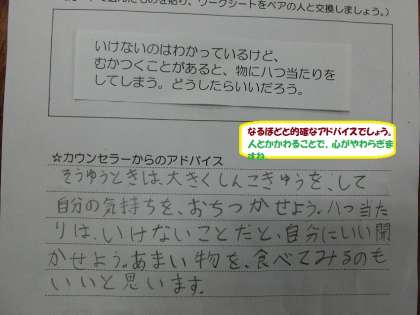 ワークシートをペアの人と交換しましょう。）
いけないのはわかっているけど、
むかつくことがあると、物にハつ当たりを
してしまう。どうしたらいいだろう。
なるほどと的確なアドバイスでしょう。
人とかかわることで、心がやわらぎま
すね
☆カウンセラーからのアドバイス
そうゆうときは、大きくしんこきゅうを、して
自分の気持ちを、おちつかせよう。ハつ当た
りは、いけないことだと、自分にいい聞
かせよう。あまい物を、食べてみるのも
いいと思います。